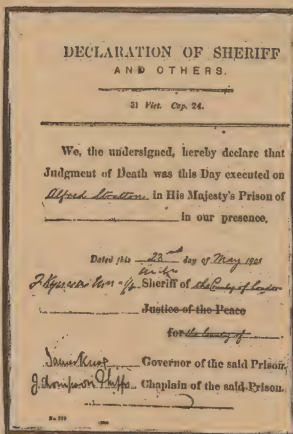 DECLARATION OF SHERIFF
AND OTHERS.
31 Vict. Cap. 24.
We, the undersigned, hereby declare that
Judgment of Death was this Day executed on
Alfred Stratton in His Majesty's Prison of
in our presence.
Dated this 23rd day of May
Sheriff of the County of London
Justice of the Peace
for the County of
Governor of the said Prison.
Chaplain of the said Prison.